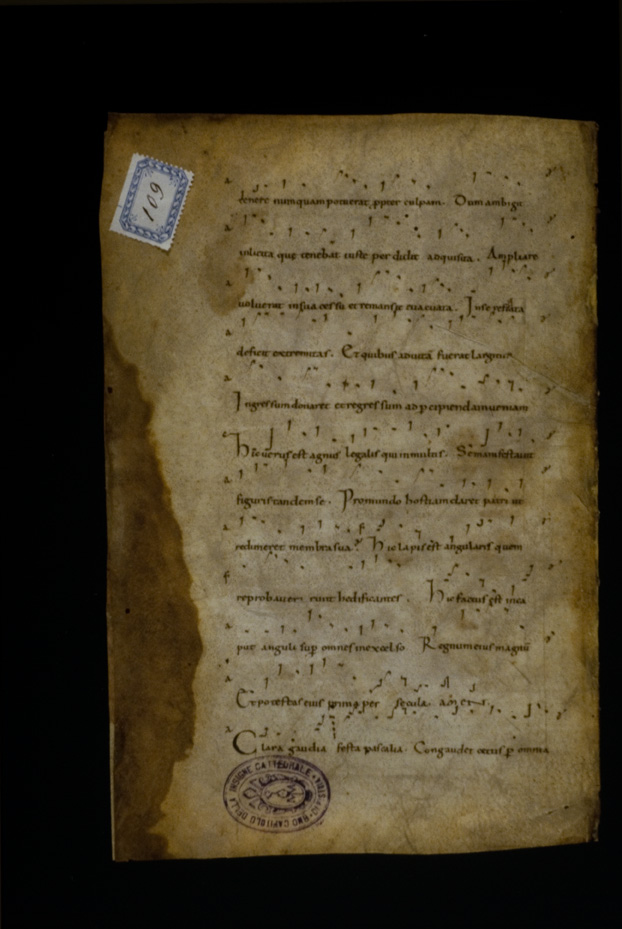 109
denere numquam poterat ppter culpam. Dum ambigit
inlicita que tenebat iuste perdidit adquisita. Ampliare
voluerat insua cessū et remansit evacuata.
deficit extremitas. Et quibus ad vitā fuerat largitus
Ingressum donaret et regressum ad percipiendam veniam
Hic verus est agnus legalis qui in multis. Se manifestavit
figuris tandem se. Pro mundo hostiam daret patri ut
redimeret membra sua. Hic lapis est angularis quem
reprobaverunt hedificantes. Hic factus est inca
put anguli sup omnes in excelso. Regnum eius magnū
Et potestas eius primo per secula. amen.
Clara gaudia festa pascalia. Congaudet cetus p omnia
INSIGNE CATTEDRALE
CAPITOLO DELLA